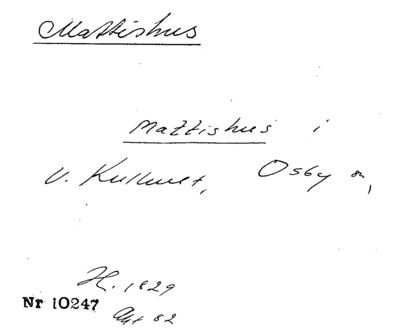 Mattishus
Mattishus i
V. Kullhult, Osby sn,
H. 1829
Nr 10247
Akt 82